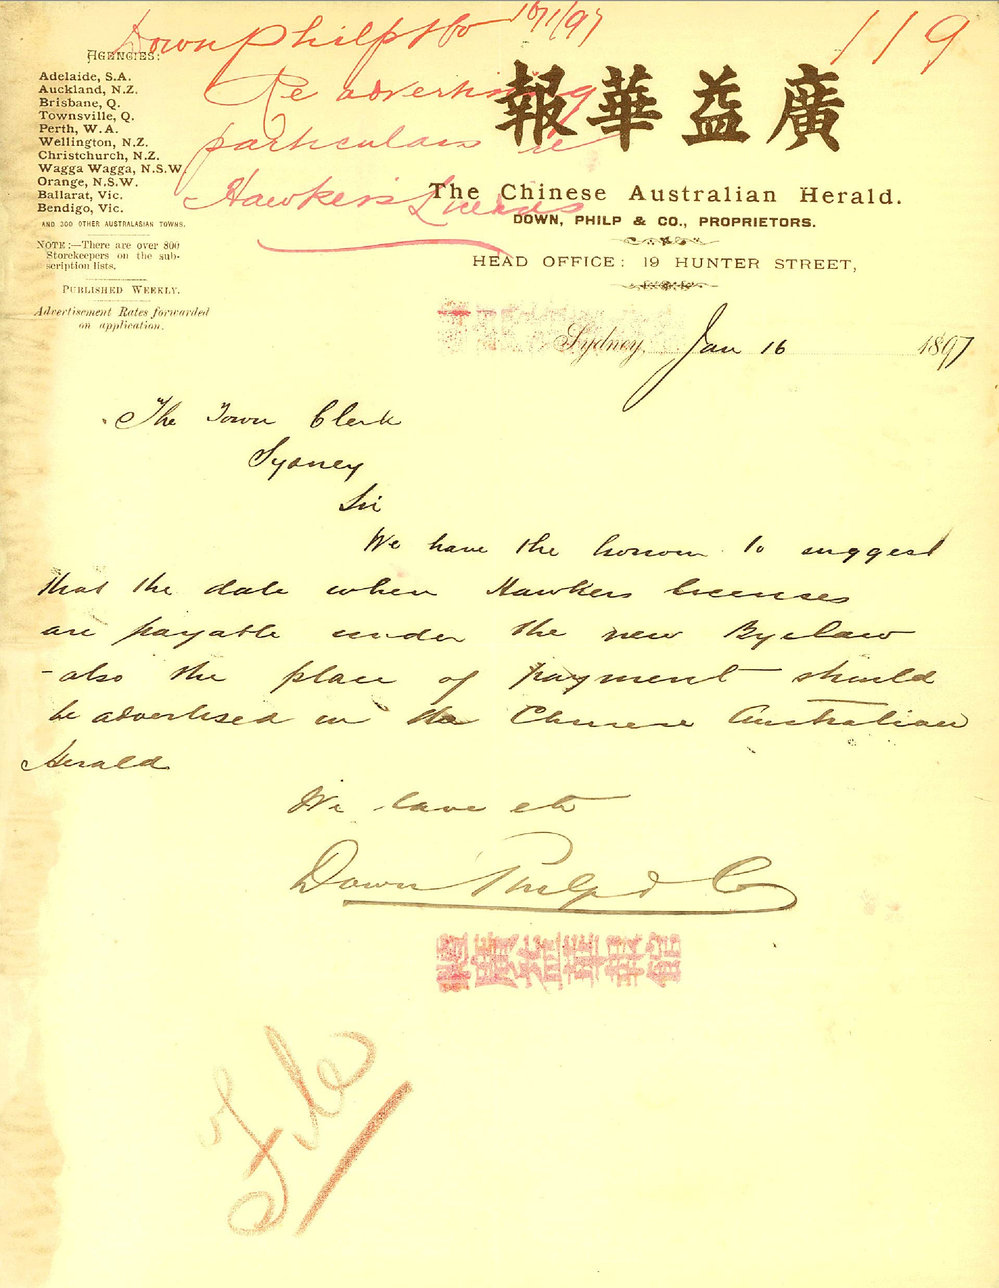 Down Philp & Co 16/1/97
119
Re advertising
particulars re
Hawkers Licenses
AGENCIES:
Adelaide, S.A.
Auckland, N.Z.
Brisbane, Q.
Townsville, Q.
Perth, W.A.
Wellington, N.Z.
Christchurch, N.Z.
Wagga Wagga, N.S.W.
Orange, N.S.W.
Ballarat, Vic.
Bendigo, Vic.
AND 300 OTHER AUSTRALASIAN TOWNS.
NOTE:—There are over 800
Storekeepers on the sub-
scription lists.
PUBLISHED WEEKLY.
Advertisement Rates forwarded
on application.
報華益廣
The Chinese Australian Herald.
DOWN, PHILP & CO., PROPRIETORS.
HEAD OFFICE: 19 HUNTER STREET,
Sydney, Jan 16 1897
The Town Clerk
Sydney
Sir
We have the honour to suggest
that the date when Hawkers licenses
are payable under the new Byelaw
- also the place of payment should
be advertised in the Chinese Australian
Herald
We have etc
Down Philp & Co
廣益華報館
File